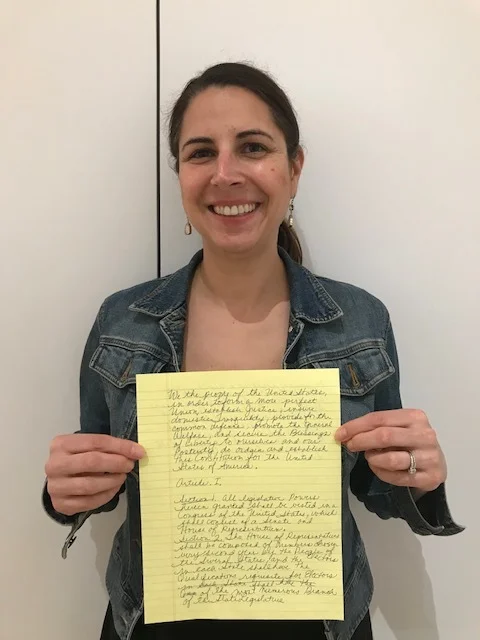 We the people of the United States,
in order to form a more perfect
Union, establish Justice, insure
domestic Tranquility, provide for the
common defence, promote the General
Welfare, and secure the Blessings
of Liberty to ourselves and our
Posterity, do ordain and establish
this Constitution for the United
States of America.
Article. I.
Section 1. All legislative Powers
herein granted shall be vested in a
Congress of the United States, which
shall consist of a Senate and
House of Representatives.
Section 2. The House of Representatives
shall be composed of Members chosen
every second Year by the People of
the several States, and the Electors
in each State shall have the
Qualifications requisite for Electors
of the most numerous Branch
of the State Legislature